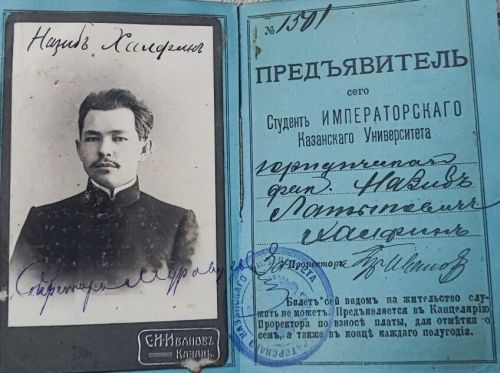 Назибъ Халфинъ
Секретарь
С.И. Ивановъ
Казань.
№ 1501
ПРЕДЪЯВИТЕЛЬ
сего
Студентъ ИМПЕРАТОРСКАГО
Казанскаго Университета
юридическаго
фак. Назибъ
Латыповичъ
Халфинъ
За Проректора Ивановъ
Билетъ сей видомъ на жительство слу-
жить не можетъ. Предъявляется въ Канцелярію
Проректора по взносѣ платы, для отмѣтки о
семъ, а также въ концѣ каждаго полугодія.